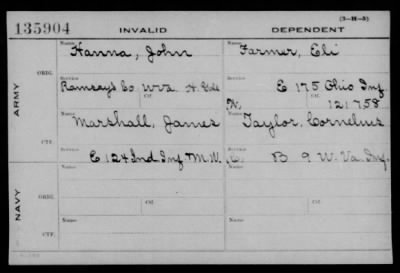 (3-H-5)
135904 INVALID DEPENDENT
ARMY
ORIG.
Name Hanna, John
Name Farmer, Eli
Service Ramsay's Co. W Va. H. Gds
Ctf.
Service E 175 Ohio Inf
Ctf. 121758
W.
CTF.
Name Marshall, James
Name Taylor, Cornelius
E 124 Ind Inf M.W.C.
B 9 W. Va. Inf.
NAVY
ORIG.
Name
Name
Service
Ctf.
Service
Ctf.
CTF.
Name
Name